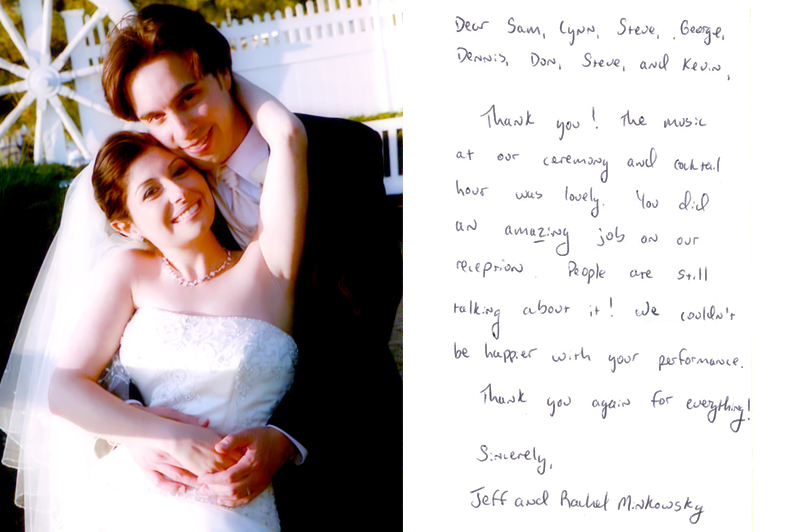 Dear Sam, Lynn, Steve, George,
Dennis, Don, Steve, and Kevin,
Thank you! The music
at our ceremony and cocktail
hour was lovely. You did
an amazing job on our
reception. People are still
talking about it! We couldn't
be happier with your performance.
Thank you again for everything!
Sincerely,
Jeff and Rachel Minkowsky